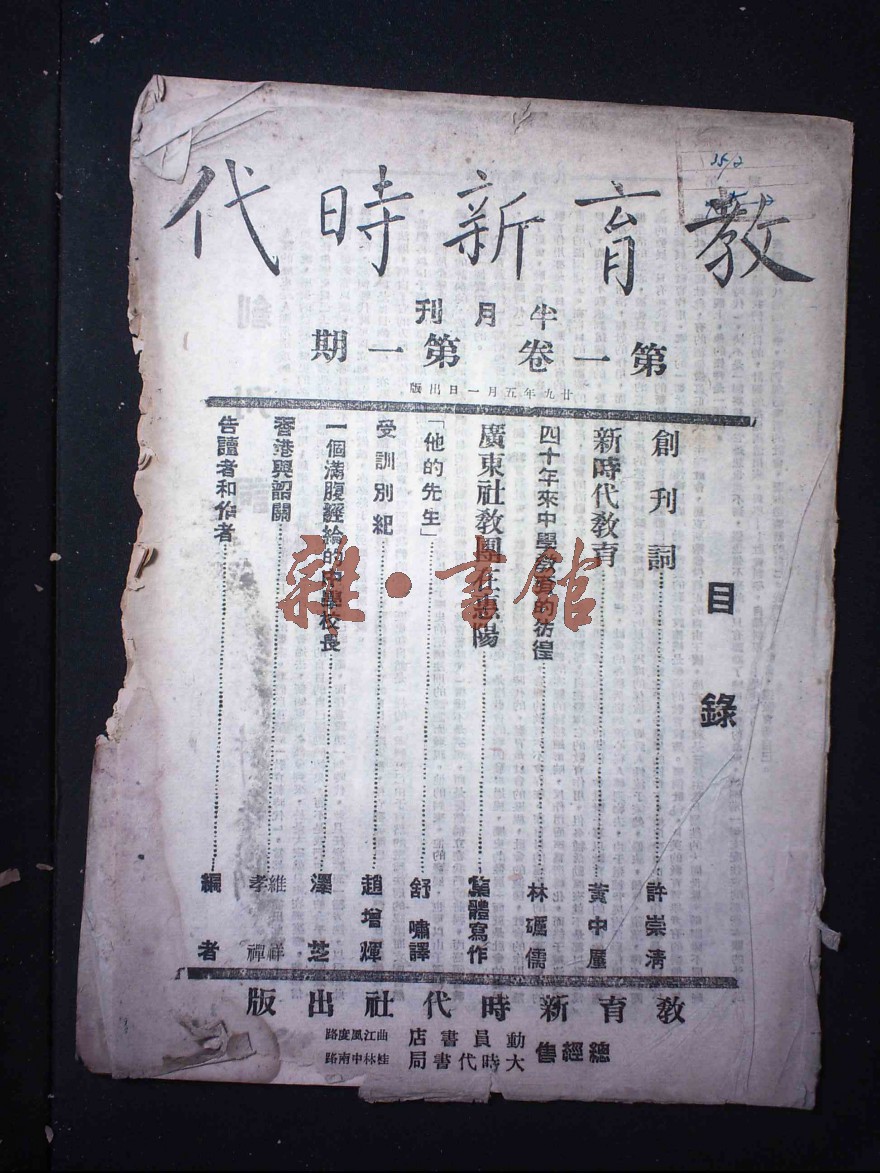 教育新時代
半月刊
第一卷 第一期
廿九年五月一日出版
目錄
創刊詞……許崇清
新時代教育……黃中廈
四十年來中學教育的彷徨……林礪儒
廣東社教團在惠陽……集體寫作
「他的先生」……舒嘯譯
受訓別紀……趙增煇
一個滿腹經綸的中學校長……澤芝
香港與韶關……維祥 孝禪
告讀者和作者……編者
教育新時代社出版
總經售
動員書店 曲江風度路
大時代書局 桂林中南路
雜·書館